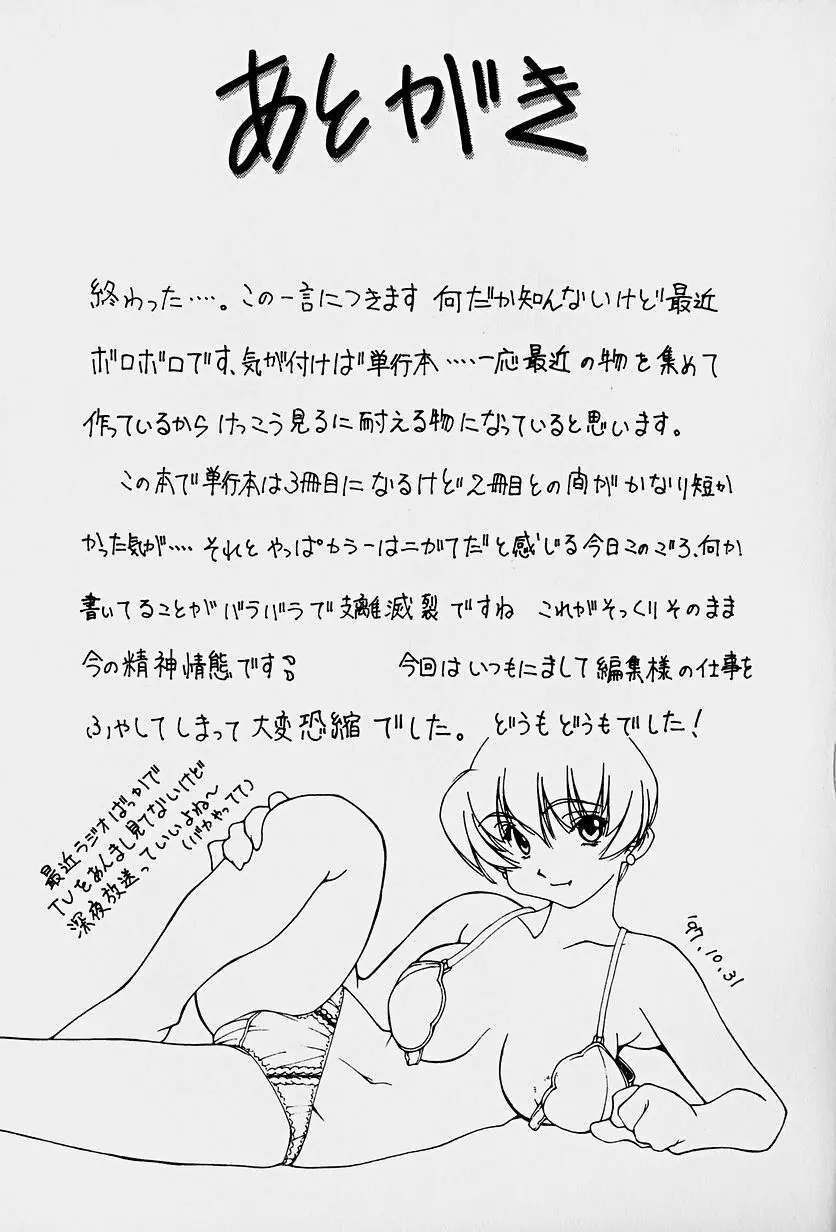 あとがき
終わった‥‥。この一言につきます 何だか知んないけど最近
ボロボロです、気が付けば単行本‥‥一応最近の物を集めて
作っているからけっこう見るに耐える物になっていると思います。
この本で単行本は3冊目になるけど2冊目との間がかなり短か
かった気が‥‥それとやっぱカラーはニガてだと感じる今日このごろ、何か
書いてることがバラバラで支離滅裂ですね これがそっくりそのまま
今の精神情態です 今回はいつもにまして編集様の仕事を
ふやしてしまって大変恐縮でした。どうもどうもでした!
最近ラジオばっかで
TVをあんまし見てないけど
深夜放送っていいよね〜
(バカやってて)
'97.10.31